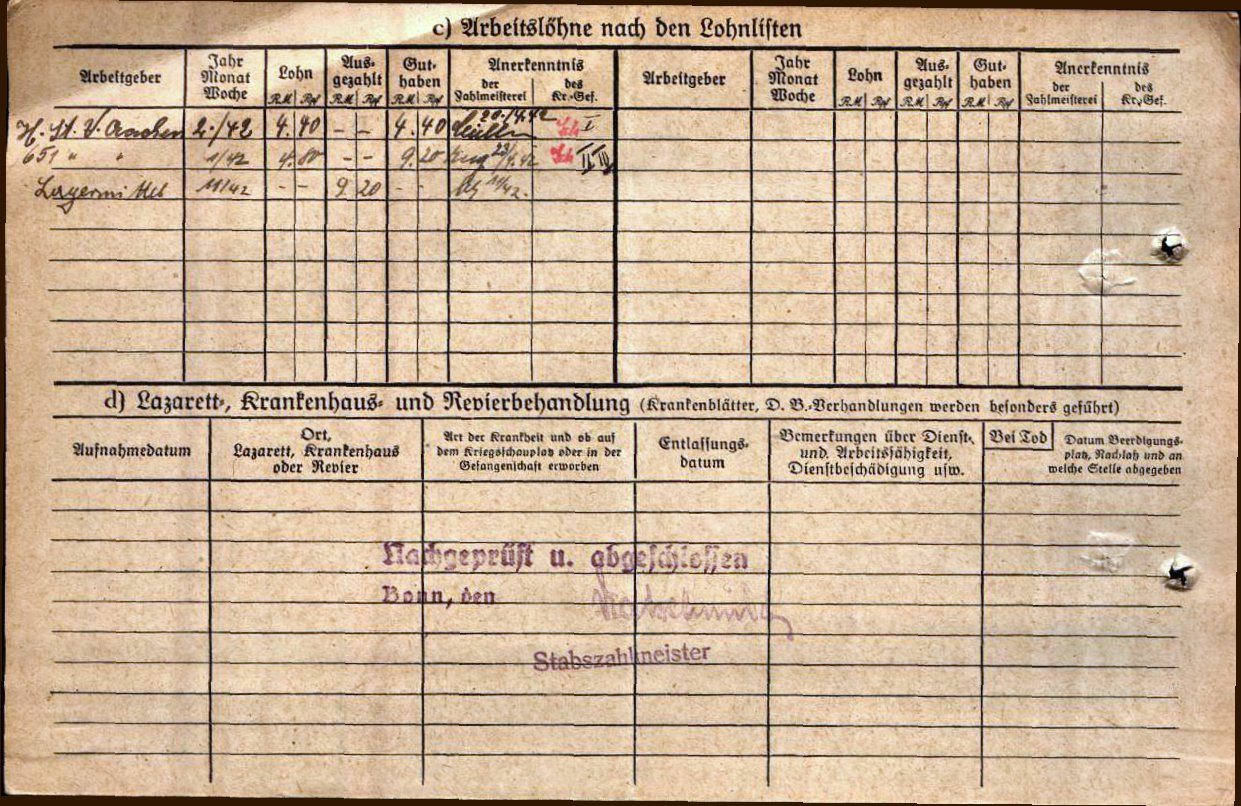 c) Arbeitslöhne nach den Lohnlisten
Arbeitgeber Jahr Monat Woche Lohn RM Rpf Aus-gezahlt RM Rpf Gut-haben RM Rpf Anerkenntnis der Zahlmeisterei des Kr.-Gef. Arbeitgeber Jahr Monat Woche Lohn RM Rpf Aus-gezahlt RM Rpf Gut-haben RM Rpf Anerkenntnis der Zahlmeisterei des Kr.-Gef.
H. St. V. Aachen 2./42 4.40 - - 4.40 20./4.42 I
651 " " 1/42 4.80 - - 9.20 23/4.42
11/42 - - 9 20 - - 11/42.
d) Lazarett-, Krankenhaus- und Revierbehandlung (Krankenblätter, D. B.-Verhandlungen werden besonders geführt)
Aufnahmedatum Ort, Lazarett, Krankenhaus oder Revier Art der Krankheit und ob auf dem Kriegsschauplatz oder in der Gefangenschaft erworben Entlassungs-datum Bemerkungen über Dienst- und Arbeitsfähigkeit, Dienstbeschädigung usw. Bei Tod Datum Beerdigungs-platz, Nachlaß und an welche Stelle abgegeben
Nachgeprüft u. abgeschlossen
Bonn, den
Stabszahlmeister